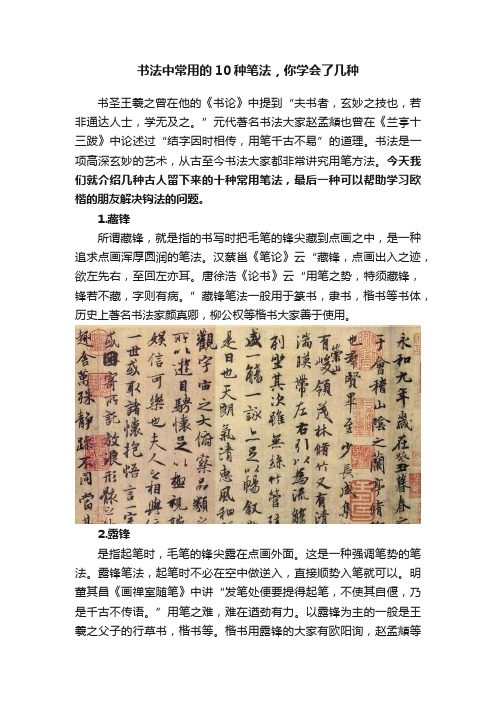 书法中常用的10种笔法，你学会了几种
书圣王羲之曾在他的《书论》中提到“夫书者，玄妙之技也，若
非通达人士，学无及之。”元代著名书法大家赵孟頫也曾在《兰亭十
三跋》中论述过“结字因时相传，用笔千古不易”的道理。书法是一
项高深玄妙的艺术，从古至今书法大家都非常讲究用笔方法。今天我
们就介绍几种古人留下来的十种常用笔法，最后一种可以帮助学习欧
楷的朋友解决钩法的问题。
1.藏锋
所谓藏锋，就是指的书写时把毛笔的锋尖藏到点画之中，是一种
追求点画浑厚圆润的笔法。汉蔡邕《笔论》云“藏锋，点画出入之迹，
欲左先右，至回左亦耳。唐徐浩《论书》云“用笔之势，特须藏锋，
锋若不藏，字则有病。”藏锋笔法一般用于篆书，隶书，楷书等书体，
历史上著名书法家颜真卿，柳公权等楷书大家善于使用。
永和九年歲在癸丑暮春之
于會稽山陰之蘭亭脩
也羣賢畢至少長咸集
崇山
有峻領茂林脩竹又有清
湍暎帶左右引以為流觴
列坐其次雖無絲竹管弦
盛一觴一詠亦足以暢叙
是日也天朗氣清惠風和
觀宇宙之大俯察品類之
所以遊目騁懷足以極視
娛信可樂也夫人之相與
一世或取諸懷抱悟言一室
或因寄所託放浪形骸之外
趣舍萬殊静躁不同當其
2.露锋
是指起笔时，毛笔的锋尖露在点画外面。这是一种强调笔势的笔
法。露锋笔法，起笔时不必在空中做逆入，直接顺势入笔就可以。明
董其昌《画禅室随笔》中讲“发笔处便要提得起笔，不使其自偃，乃
是千古不传语。”用笔之难，难在遒劲有力。以露锋为主的一般是王
羲之父子的行草书，楷书等。楷书用露锋的大家有欧阳询，赵孟頫等